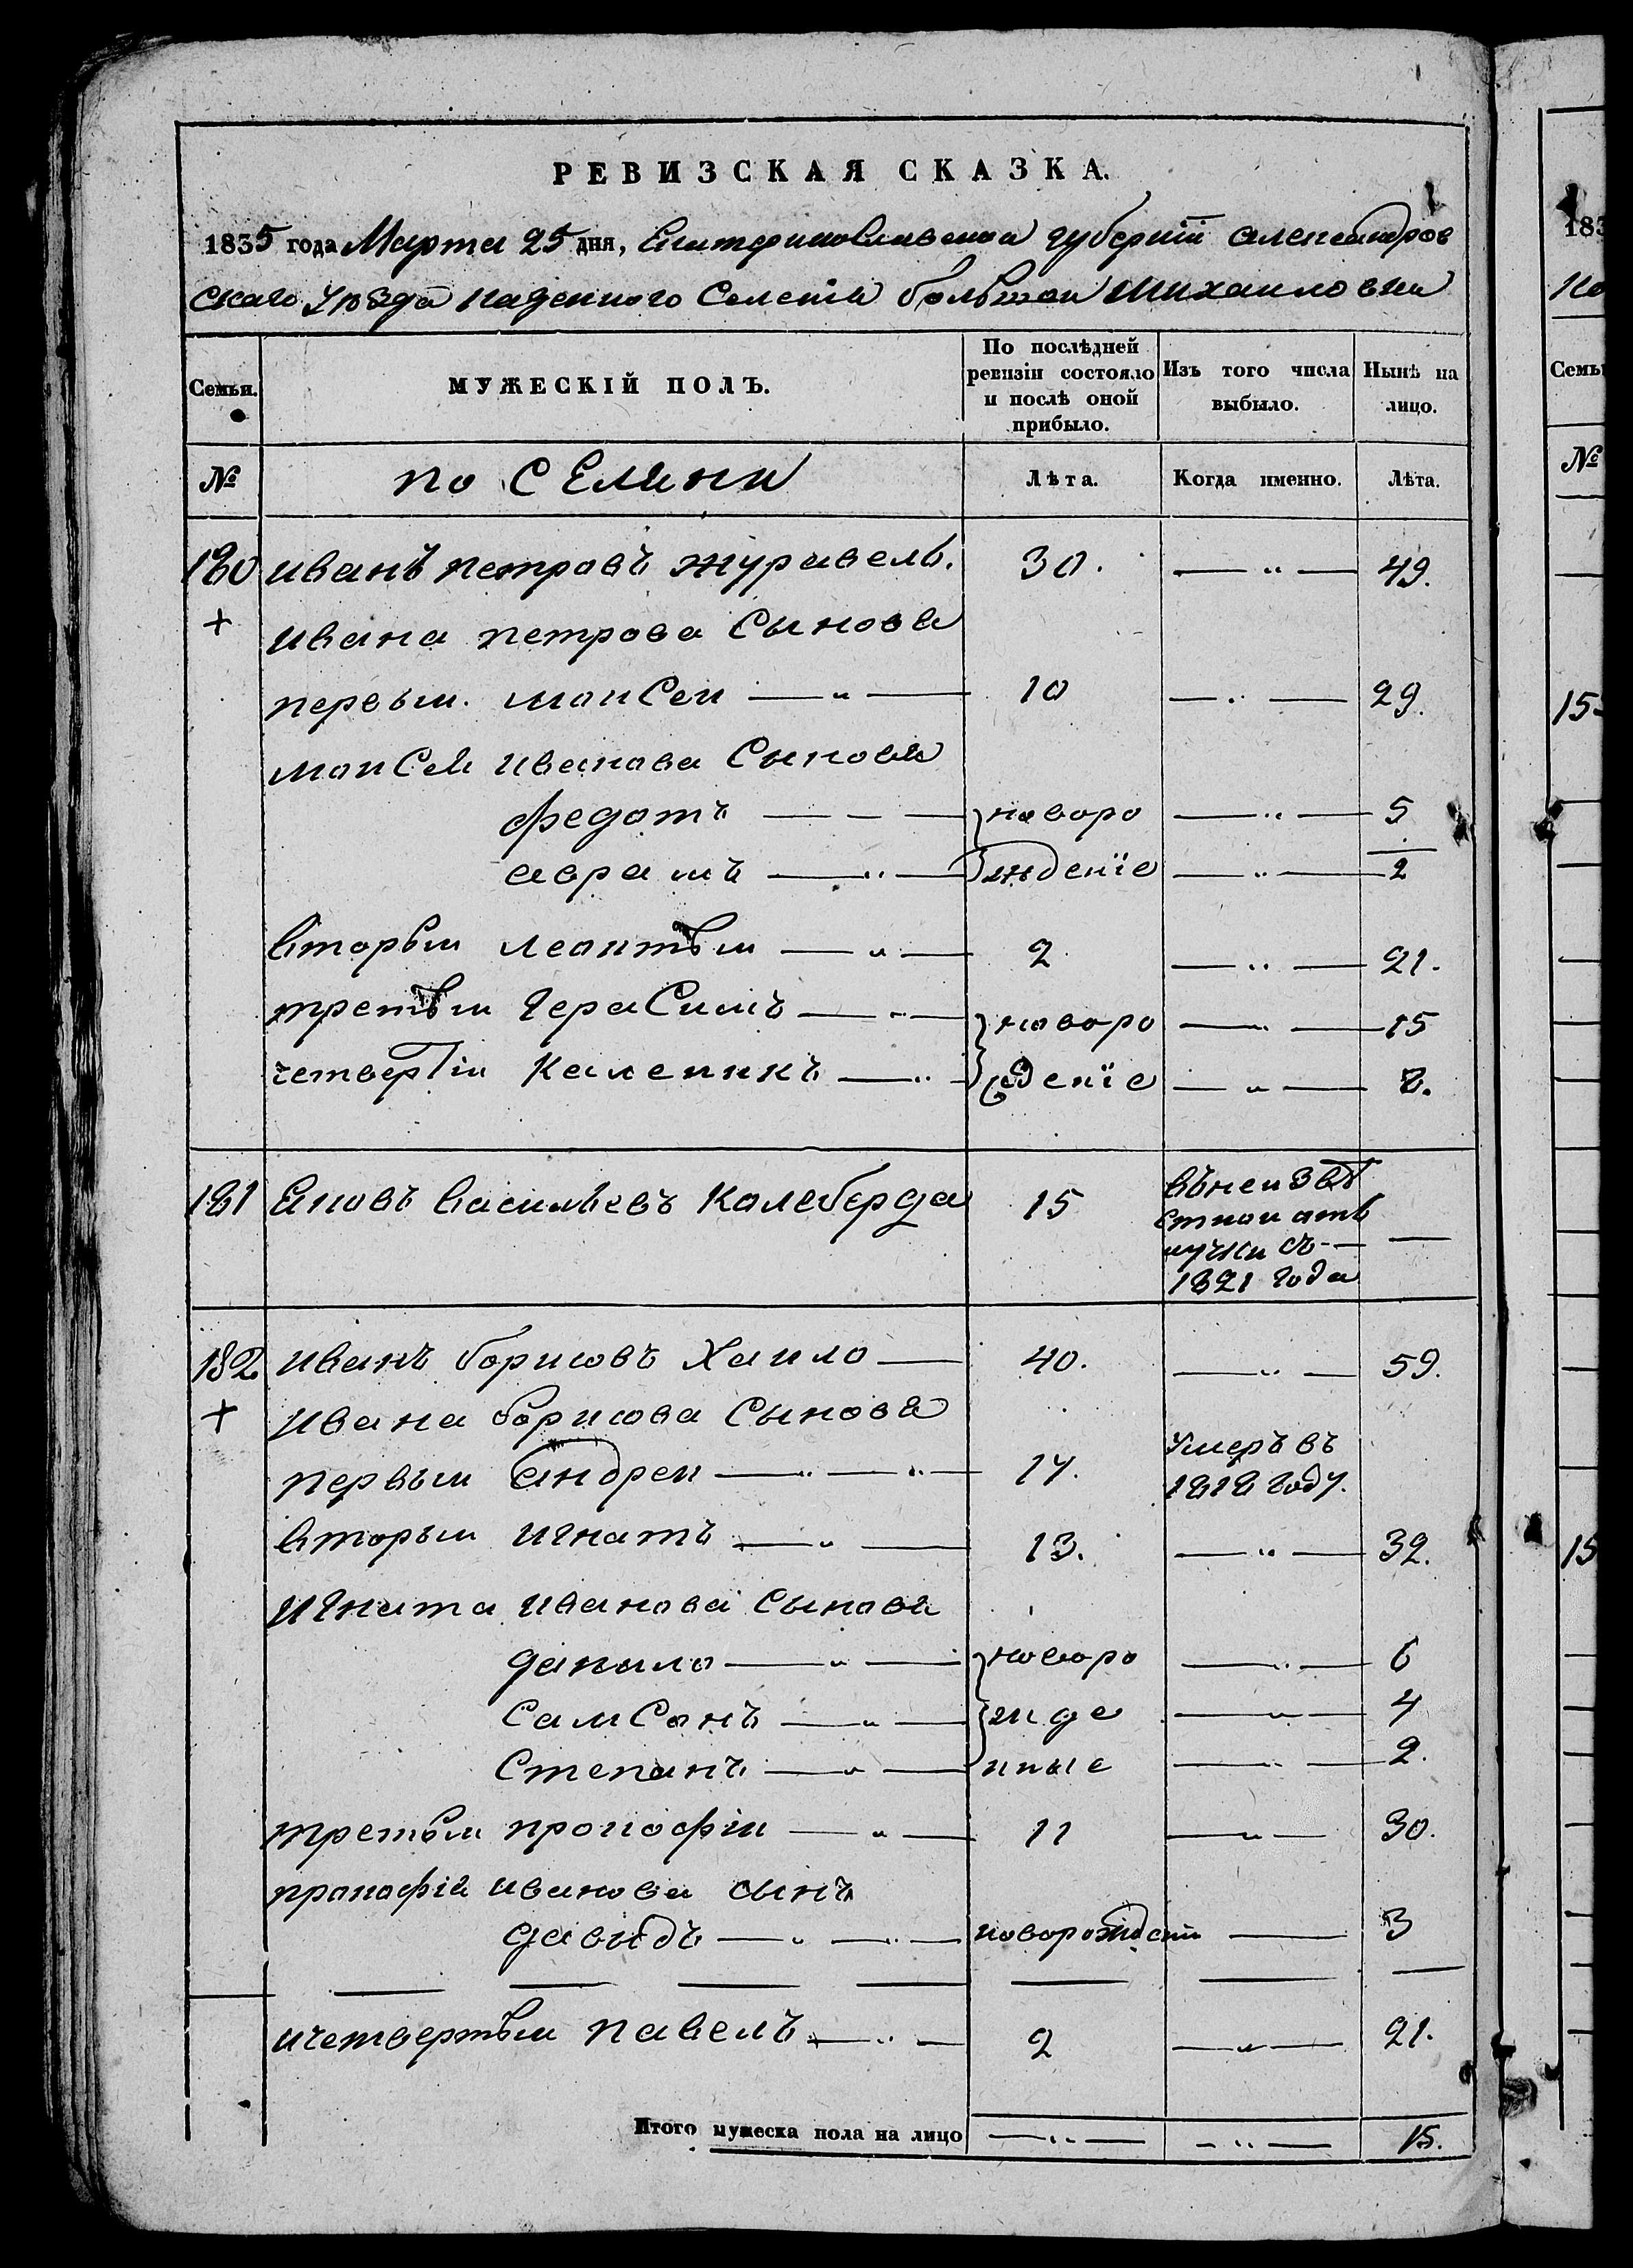 РЕВИЗСКАЯ СКАЗКА.
1835 года Марта 25 дня, Екатеринославской губернїи александров
скаго уѣзда казенного Селенїя большой Михайловки
Семьи. МУЖЕСКІЙ ПОЛЪ. По послѣдней ревизіи состояло и послѣ оной прибыло. Изъ того числа выбыло. Нынѣ на лицо.
№ поселяни Лѣта. Когда именно. Лѣта.
180 иванъ петровъ журавель. 30. — " — 49.
+ ивана петрова Сынова
первый. моисей — " — 10 — " — 29.
моисея иванова Сыновя
федотъ — — — новоро — " — 5
аврамъ — " — жденїе — " — 2
вторый леонтый — " — 2 — " — 21.
третый герасимъ — " — новоро — " — 15
четвертїй каленикъ — " — жденїе — " — 8.
181 Яковъ васильевъ колеберда 15 въ неизвѣ
стной отъ
лучки съ — —
1821 года
182 иванъ борисовъ Хаило — 40. — " — 59.
+ ивана борисова Сынова
первый андрей — " — " — 14. Умеръ въ
1818 году.
вторый игнатъ — " — 13. — " — 32.
игната иванова сынова
данило — " — новоро — " — 6
Самсонъ — " — жде — " — 4
Степанъ — " — нные — " — 2.
третый прокофїй — " — 11 — " — 30.
прокофїя иванова сынъ
давыдъ — " — " — новорожден — 3
ичетвертый павелъ — " — 2 — " — 21.
Итого мужеска пола на лицо — " — — " — 15.
183
Семьи
№
15
15